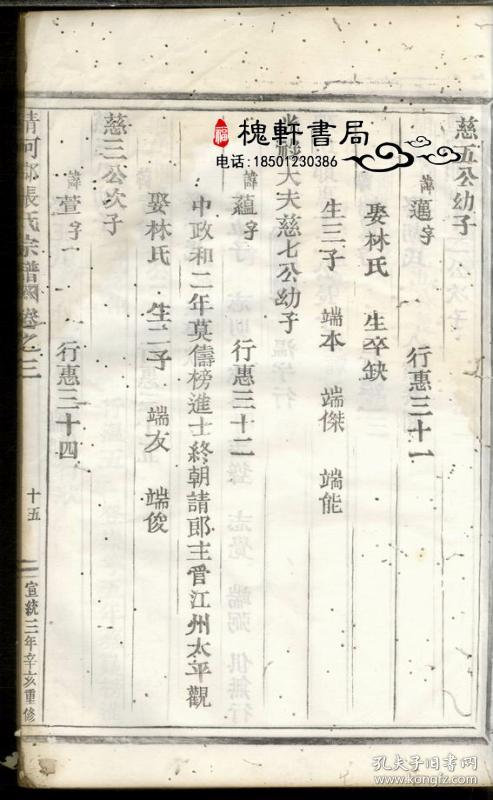 慈五公幼子
諱邁字 行惠三十一
娶林氏 生卒缺
生三子 端本 端傑 端能
大夫慈七公幼子
諱蘊字 行惠三十二
中政和二年莫儔榜進士終朝請郎主管江州太平觀
娶林氏 生二子 端友 端俊
慈三公次子
諱萱字 行惠三十四
清河郡張氏宗譜 卷之三 十五 宣統三年辛亥重修
福
槐軒書局
电话:18501230386
孔夫子旧书网